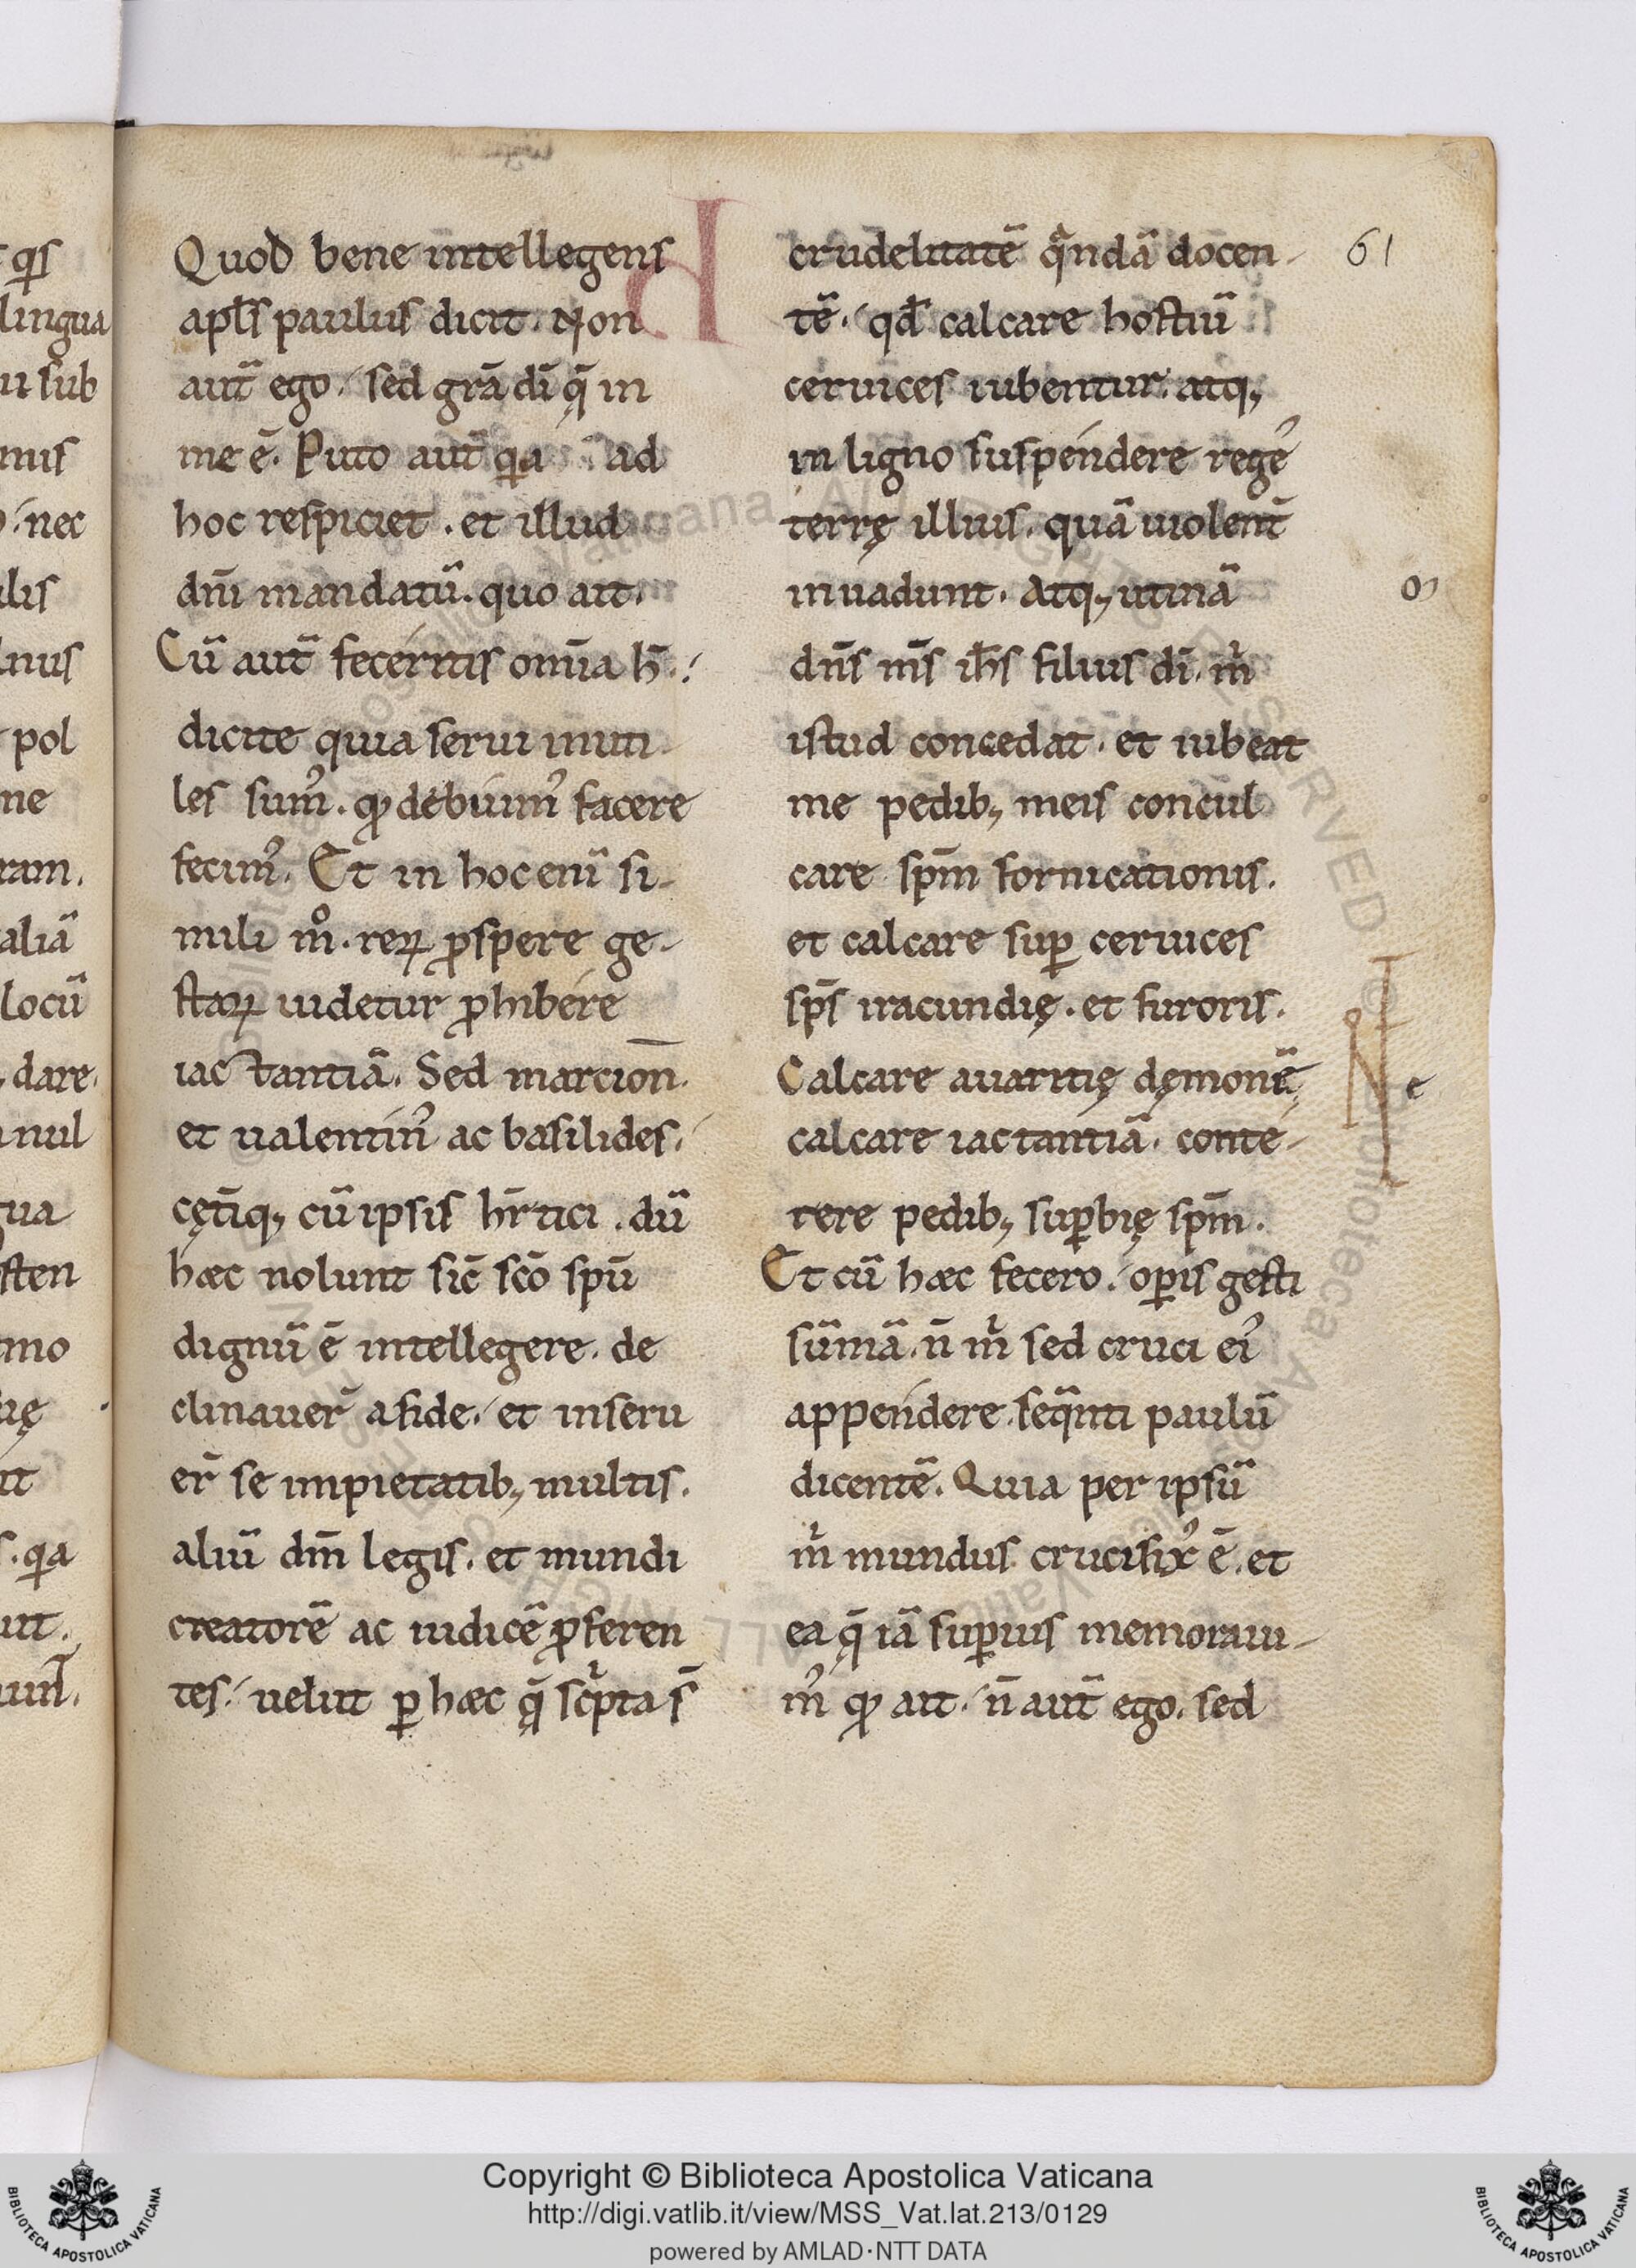 Quod bene intellegens
apl̄s paulus dicit. Non
aut̄ ego. sed grā dī q̄ in
me ē. Puto aut̄ qa ad
hoc respiciet. et illud
dn̄i mandatū. quo ait.
Cū aut̄ feceritis omīa h̄.
dicite quia serui inuti-
les sumꝰ. qꝫ debuimꝰ facere
fecimꝰ. Et in hoc enī si-
mili mͦ. reꝝ ꝓspere ge-
staꝝ uidetur ꝓhibere
iactantiā. Sed marcion̄.
et ualentinꝰ ac basilides.
cętīqꝫ cū ipsis hr̄tici. dū
hæc nolunt sic̄ sc̄o spū
dignū ē intellegere. de
clinauer̄ a fide. et inseru
er̄ se impietatibꝫ multis.
aliū dm̄ legis. et mundi
creatorē ac iudicē ꝓferen
tes. uelut ꝑ hæc q̄ scͥpta s̄
crudelitatē qͣndā docen-
tē. qd̄ calcare hostiū
ceruices iubentur. atqꝫ
in ligno suspendere regeꝰ
terrę illius. quā uiolent̄
inuadunt. Atqꝫ utinā
dn̄s m̄s ih̄s filius dī. mͥ
istud concedat. et iubeat
me pedibꝫ meis concul
care sp̄m fornicationis.
et calcare suꝑ ceruices
sp̄s iracundię. et furoris.
Calcare auaritię dęmonē,
calcare iactantiā. conte-
rere pedibꝫ suꝑbię sp̄m.
Et cū hæc fecero. oꝑis gesti
sūmā. n̄ mͥ sed cruci eiꝰ
appendere. seqͣnti paulū
dicentē. Quia per ipsū
mͥ mundus crucifixꝰ ē. et
ea q̄ iā suꝑius memoraui-
mꝰ qꝫ ait. n̄ aut̄ ego. sed
61
e
qis
lingua
u sub
mis
nec
ilis
nus
pol
ne
ram.
aliā
locū
dare.
nul
sten
mo
it
qa
Copyright © Biblioteca Apostolica Vaticana
http://digi.vatlib.it/view/MSS_Vat.lat.213/0129
powered by AMLAD·NTT DATA
BIBLIOTECA APOSTOLICA VATICANA
BIBLIOTECA APOSTOLICA VATICANA